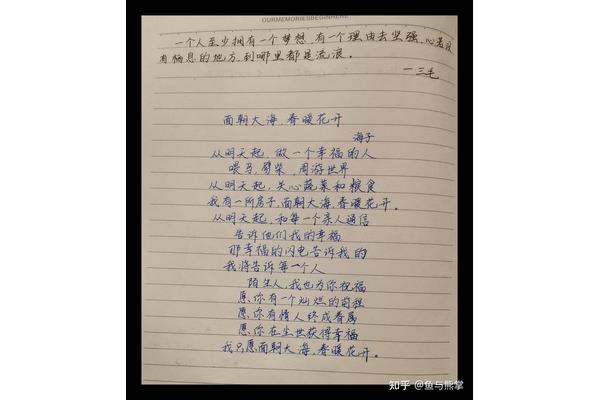 OURMEMORIESBEGINHERE
一个人至少拥有一个梦想，有一个理由去坚强。心若没
有栖息的地方，到哪里都是流浪。
一三毛
面朝大海，春暖花开
海子
从明天起，做一个幸福的人
喂马，劈柴，周游世界
从明天起，关心蔬菜和粮食
我有一所房子，面朝大海，春暖花开。
从明天起，和每一个亲人通信
告诉他们我的幸福
那幸福的闪电告诉我的
我将告诉每一个人
陌生人，我也为你祝福
愿你有一个灿烂的前程
愿你有情人终成眷属
愿你在尘世获得幸福
我只愿面朝大海，春暖花开。
知乎 @鱼与熊掌